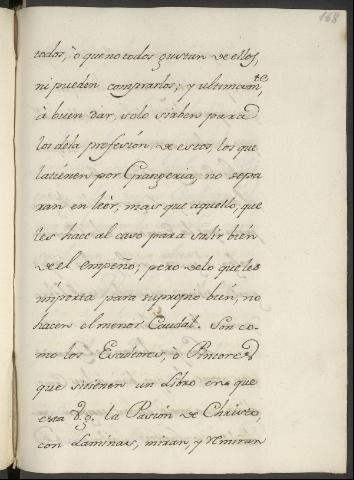 168
todos, ò que no todos gustan de ellos,
ni pueden comprarlos; y ultimam.te
à buen dar, solo sirben para
los dela profesión, de estos, los que
la tienen por Grangeria, no repa
ran en leèr, mas que aquello, que
les hace al caso para salir bien
de el empeño; pero delo que les
importa para su propio bien, no
hacen el menor Caudal. Son co-
mo los Escultores, ò Pintores
que si tienen un Libro en que
esta la Pasión de Christo,
con Laminas, miran, y remiran